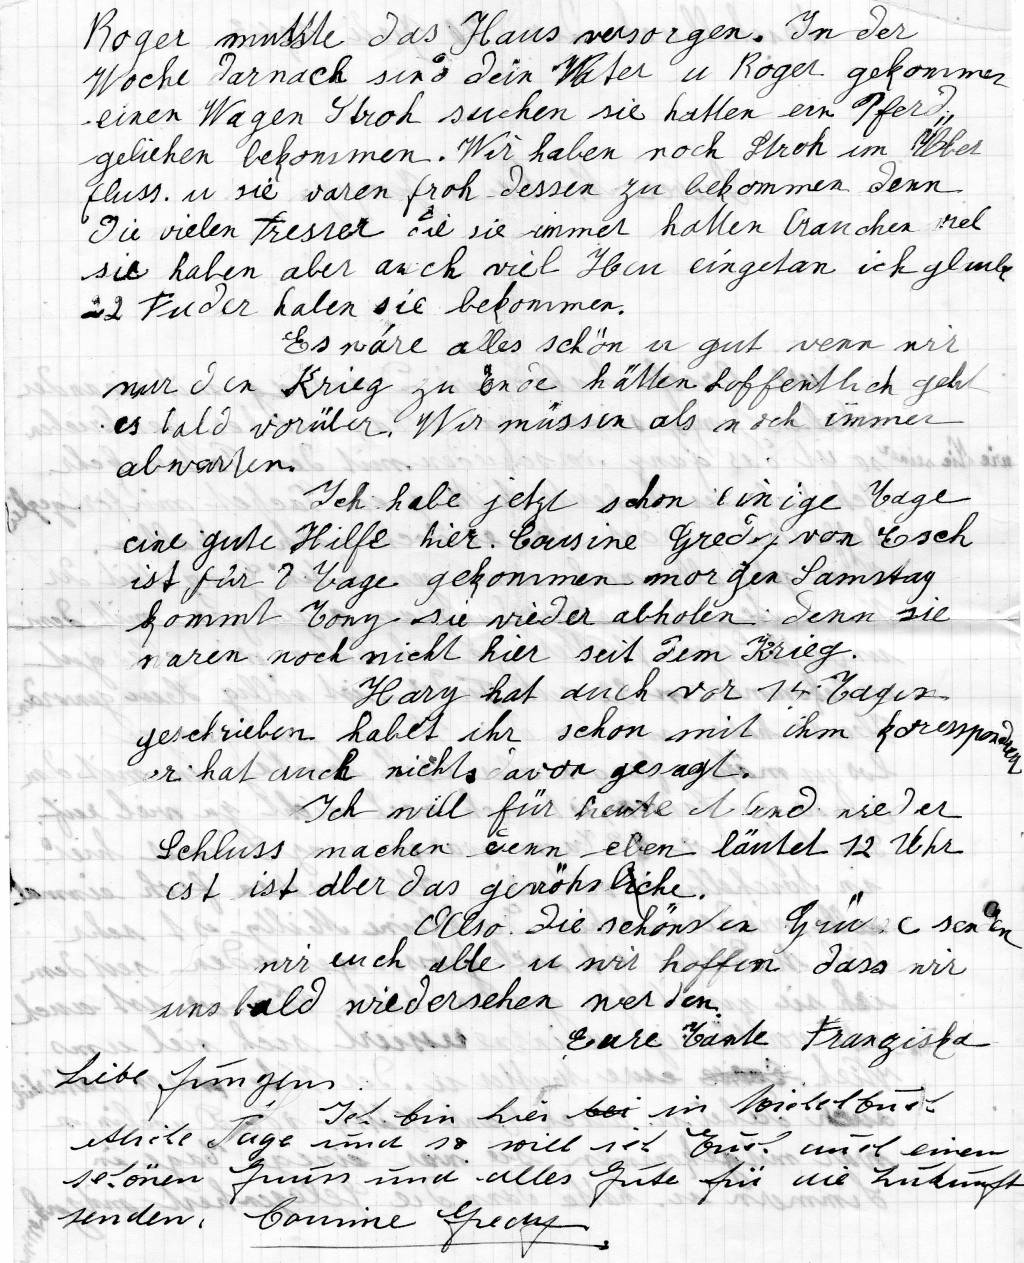 Roger musste das Haus versorgen. In der
Woche darnach sind dein Vater u Roger gekommen
einen Wagen Stroh suchen sie hatten ein Pferd
geliehen bekommen. Wir haben noch Stroh im Über
fluss. u sie waren froh dessen zu bekommen denn
die vielen Fresser die sie immer hatten brauchen viel
sie haben aber auch viel Heu eingetan ich glaube
22 Fuder haben sie bekommen.
Es wäre alles schön u gut wenn wir
nur den Krieg zu Ende hätten hoffentlich geht
es bald vorüber. Wir müssen als noch immer
abwarten.
Ich habe jetzt schon einige Tage
eine gute Hilfe hier. Cousine Gredy von Esch
ist für 8 Tage gekommen morgen Samstag
kommt Tony sie wieder abholen denn sie
waren noch nicht hier seit dem Krieg.
Hary hat auch vor 14 Tagen
geschrieben habet ihr schon mit ihm korrespondiert
er hat auch nichts davon gesagt.
Ich will für heute Abend wieder
Schluss machen denn eben läutet 12 Uhr
est ist aber das gewöhnliche.
Also die schönsten Grüsse senden
wir euch alle u wir hoffen dass wir
uns bald wiedersehen werden.
Eure Tante Franziska
Liebe Jungen
Ich bin hier bei in
Tage und so will ich Euch auch einen
schönen Gruss und alles Gute für die Zukunft
senden. Cousine Gredy